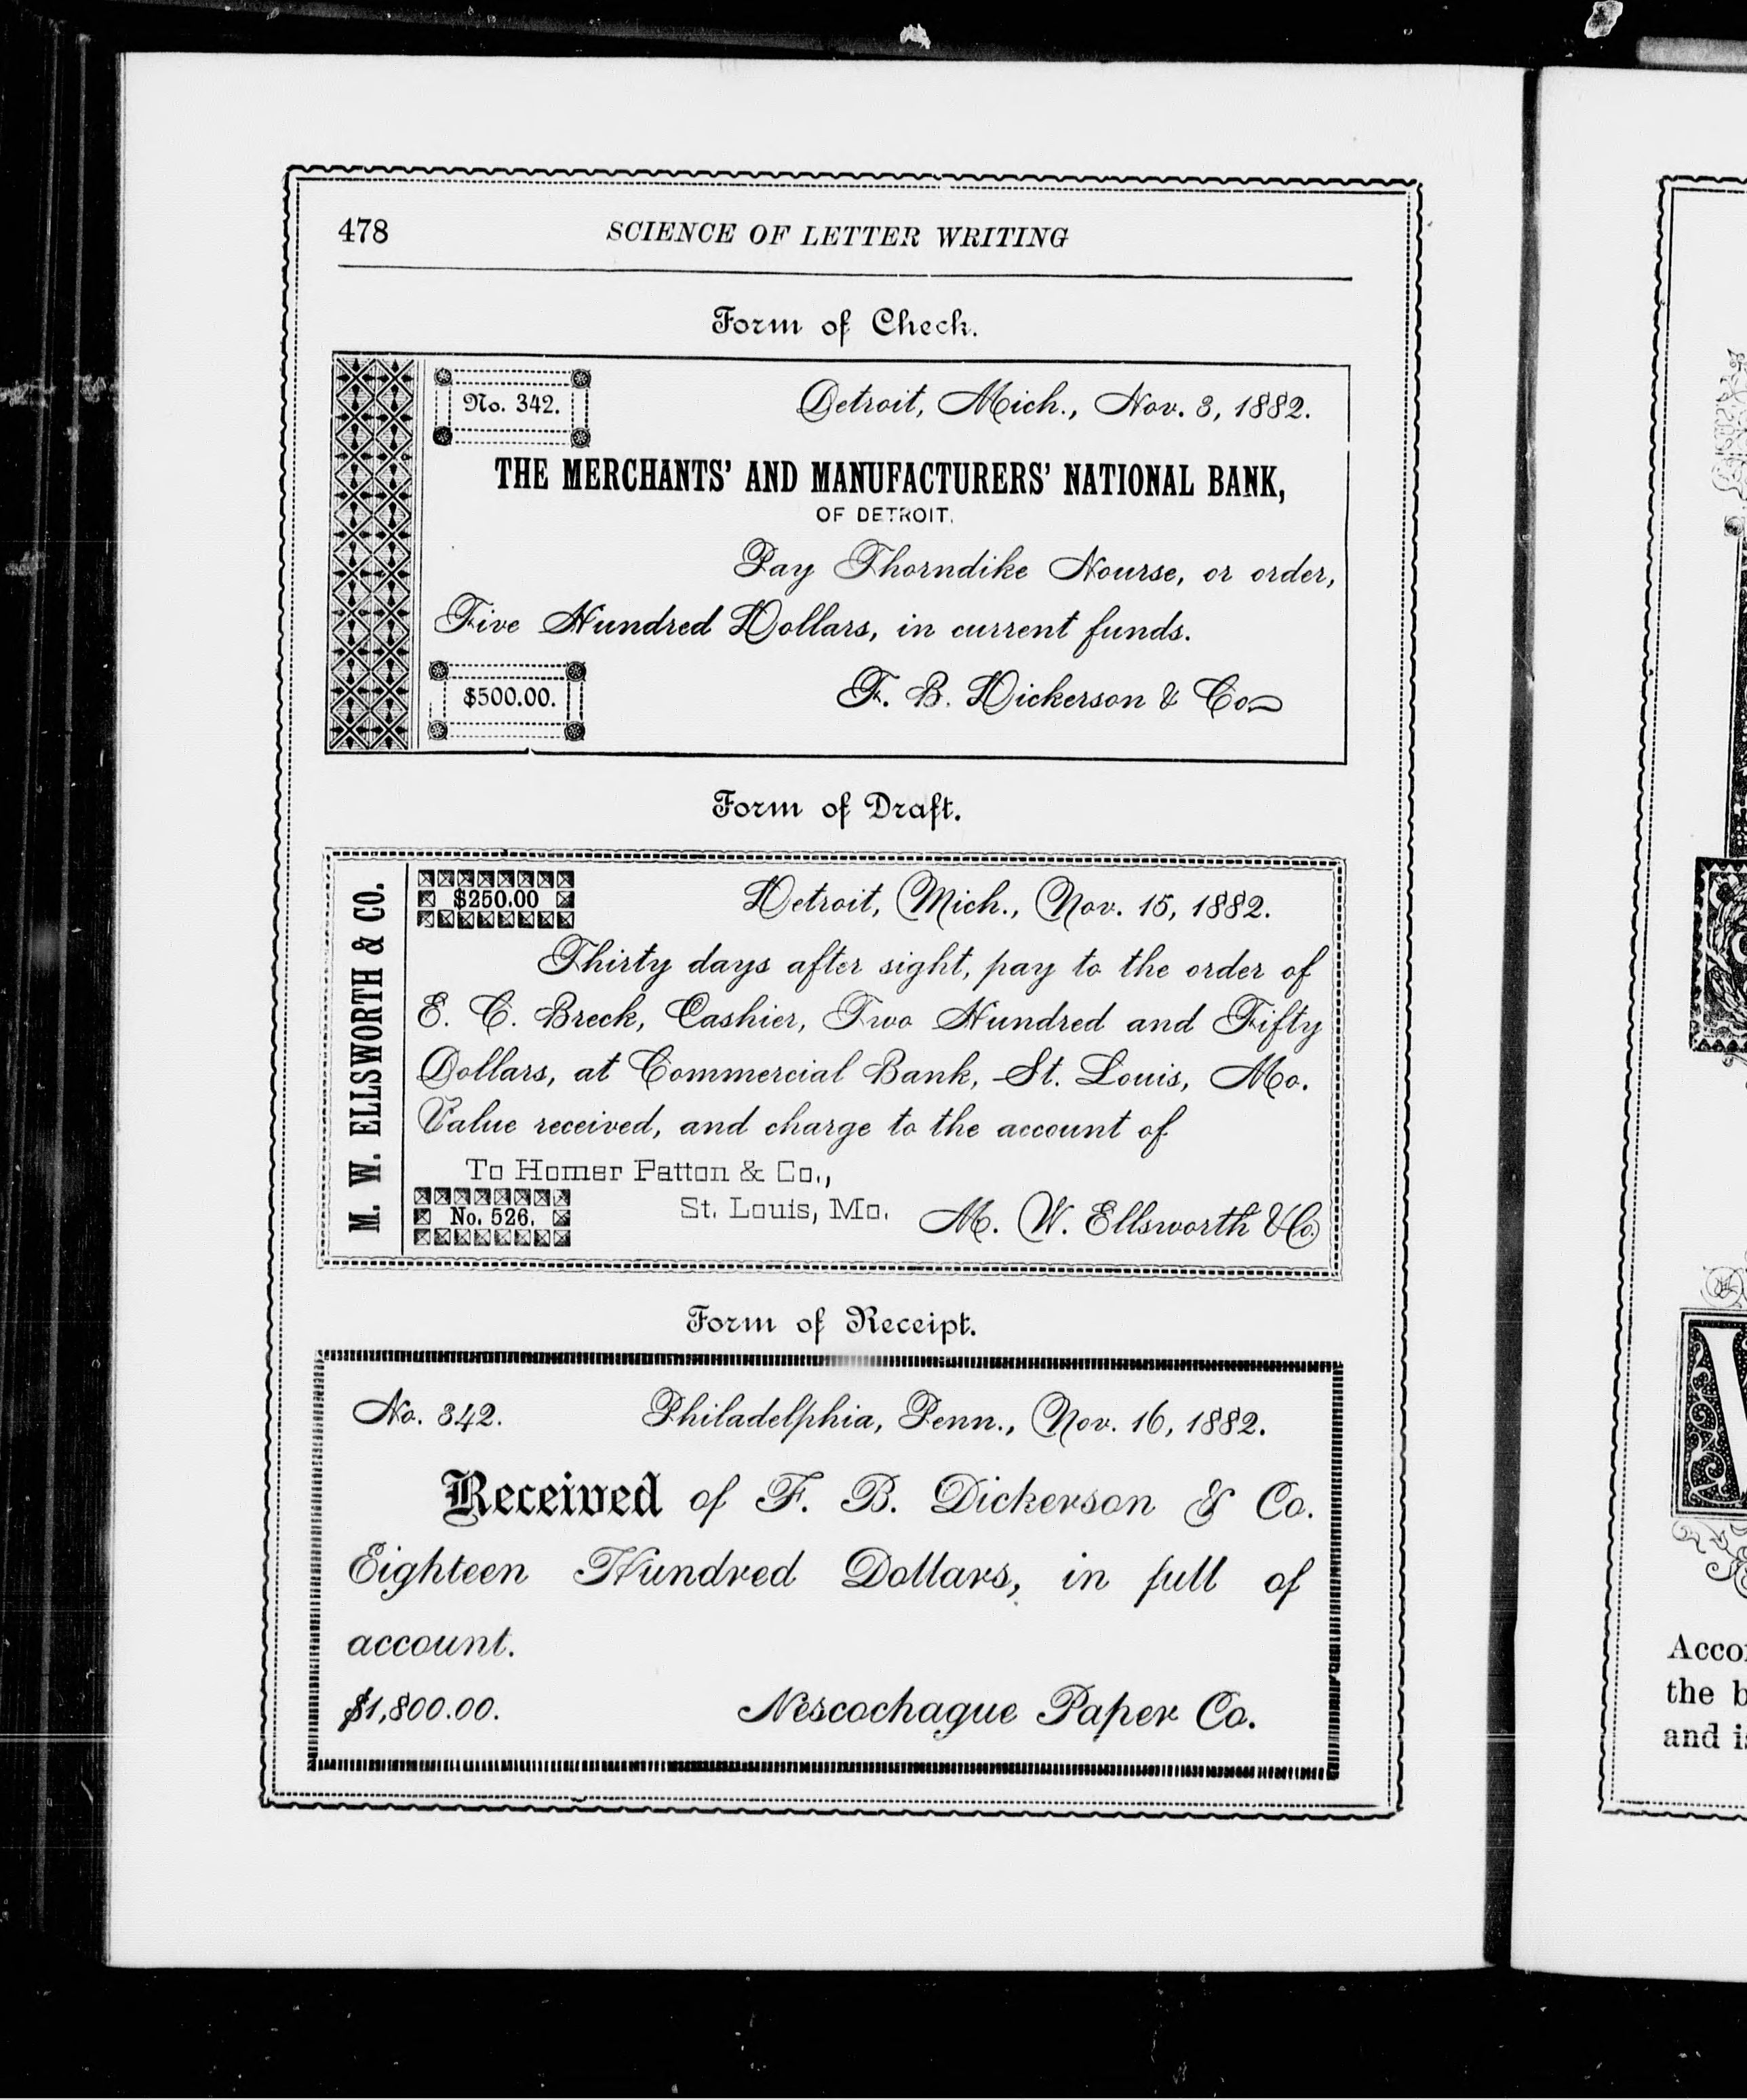 478
SCIENCE OF LETTER WRITING
Form of Check.
No. 342.
Detroit, Mich., Nov. 3, 1882.
THE MERCHANTS' AND MANUFACTURERS' NATIONAL BANK,
OF DETROIT.
Pay Thorndike Nourse, or order,
Five Hundred Dollars, in current funds.
$500.00.
F. B. Dickerson & Co.
Form of Draft.
M. W. ELLSWORTH & CO.
$250.00
Detroit, Mich., Nov. 15, 1882.
Thirty days after sight, pay to the order of
E. C. Breck, Cashier, Two Hundred and Fifty
Dollars, at Commercial Bank, St. Louis, Mo.
Value received, and charge to the account of
To Homer Patton & Co.,
St. Louis, Mo.
No. 526.
M. W. Ellsworth & Co.
Form of Receipt.
No. 342.
Philadelphia, Penn., Nov. 16, 1882.
Received of F. B. Dickerson & Co.
Eighteen Hundred Dollars, in full of
account.
$1,800.00.
Nescochague Paper Co.
the b
and i